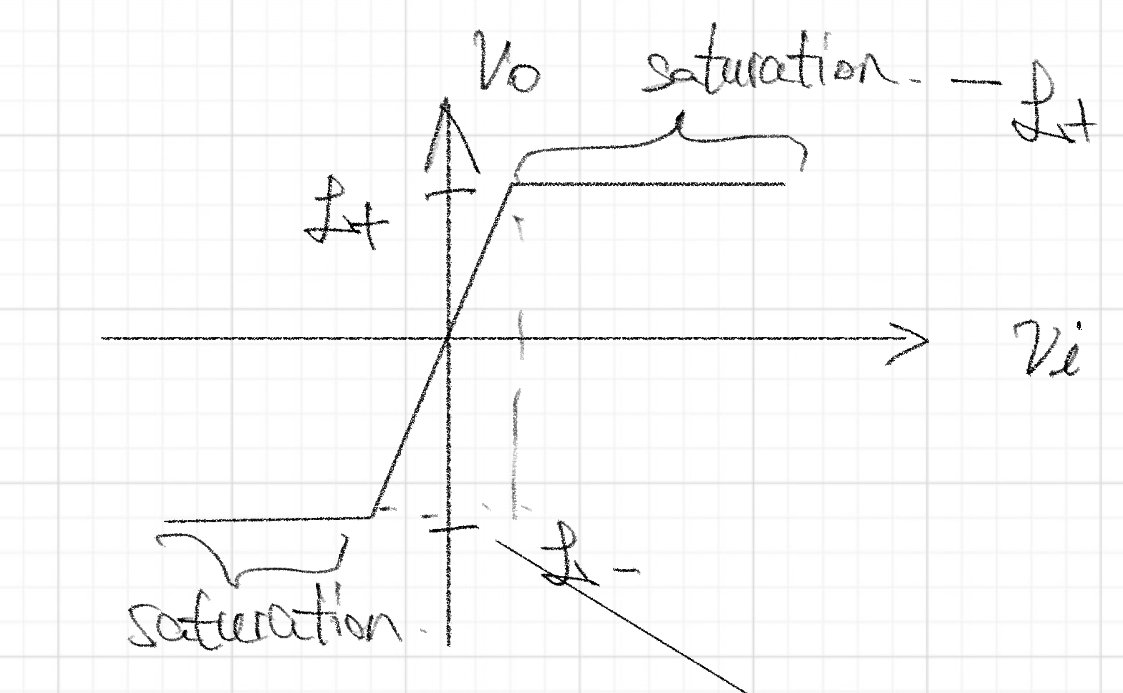 Vo saturation. - L+
L+
Vi
L-
saturation.